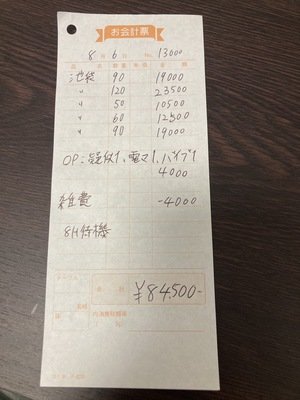 お会計票
8月6日 No. 13000
品名 数量 単価 金額
池袋 90 19000
〃 120 23500
〃 50 10500
〃 60 12500
〃 90 19000
OP:疑似1、電マ1、バイブ1
4000
雑費 -4000
8H待機
合計 ¥84,500-